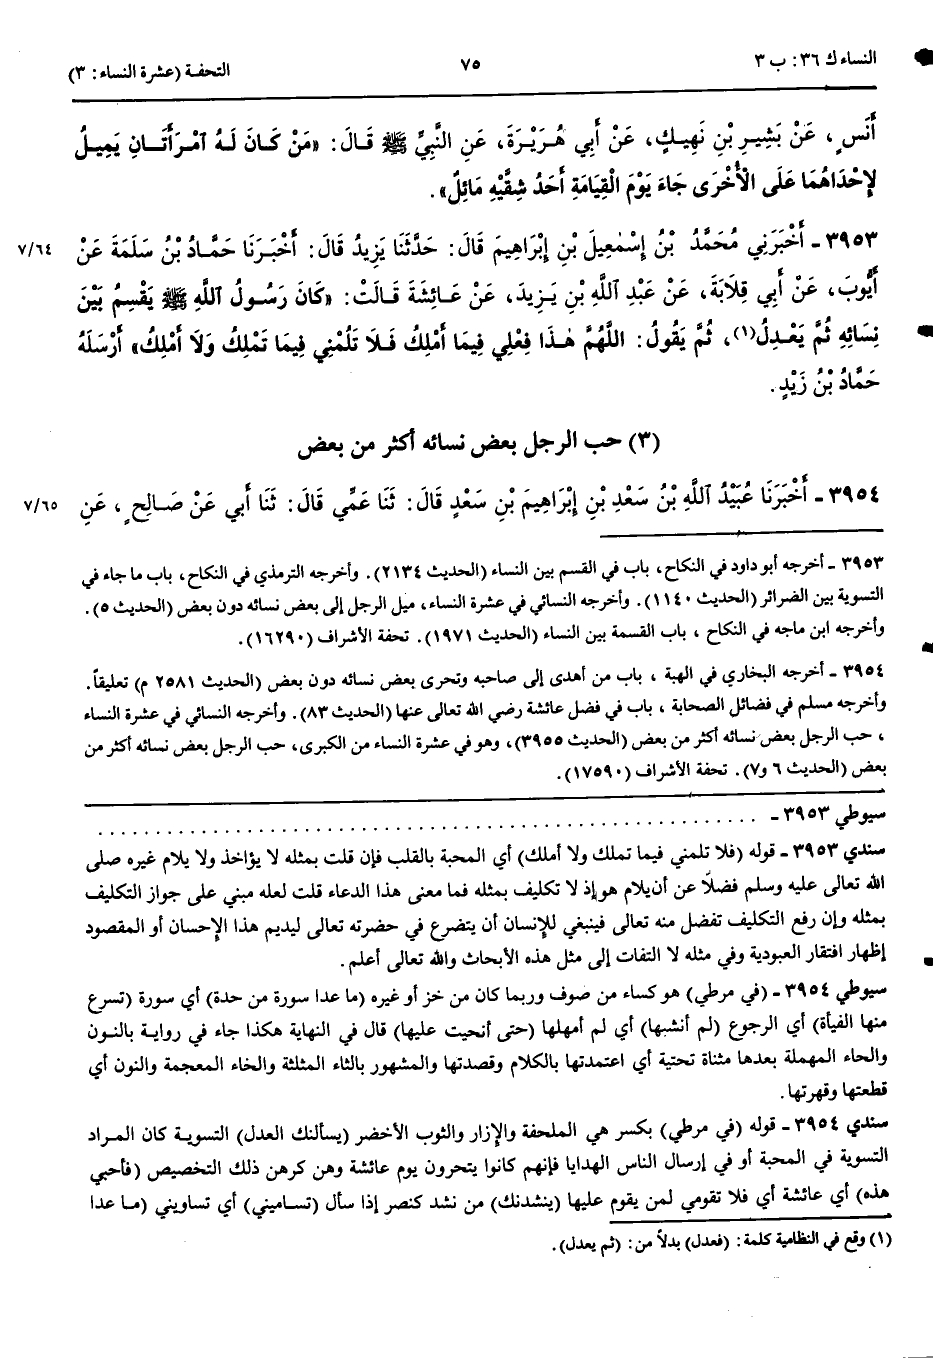 النساء ك ٣٦: ب ٣
٧٥
التحفة (عشرة النساء: ٣)
أَنَسٍ، عَنْ بَشِيرِ بْنِ نَهِيكٍ، عَنْ أَبِي هُرَيْرَةَ، عَنِ النَّبِيِّ ﷺ قَالَ: «مَنْ كَانَ لَهُ ٱمْرَأَتَانِ يَمِيلُ
لِإِحْدَاهُمَا عَلَى الْأُخْرَى جَاءَ يَوْمَ الْقِيَامَةِ أَحَدُ شِقَّيْهِ مَائِلٌ».
٣٩٥٣ ـ أَخْبَرَنِي مُحَمَّدُ بْنُ إِسْمٰعِيلَ بْنِ إِبْرَاهِيمَ قَالَ: حَدَّثَنَا يَزِيدُ قَالَ: أَخْبَرَنَا حَمَّادُ بْنُ سَلَمَةَ عَنْ
٧/٦٤
أَيُّوبَ، عَنْ أَبِي قِلَابَةَ، عَنْ عَبْدِ ٱللَّهِ بْنِ يَزِيدَ، عَنْ عَائِشَةَ قَالَتْ: «كَانَ رَسُولُ ٱللَّهِ ﷺ يَقْسِمُ بَيْنَ
نِسَائِهِ ثُمَّ يَعْدِلُ(١)، ثُمَّ يَقُولُ: اللَّهُمَّ هٰذَا فِعْلِي فِيمَا أَمْلِكُ فَلَا تَلُمْنِي فِيمَا تَمْلِكُ وَلَا أَمْلِكُ» أَرْسَلَهُ
حَمَّادُ بْنُ زَيْدٍ.
(٣) حب الرجل بعض نسائه أكثر من بعض
٣٩٥٤ ـ أَخْبَرَنَا عُبَيْدُ ٱللَّهِ بْنُ سَعْدِ بْنِ إِبْرَاهِيمَ بْنِ سَعْدٍ قَالَ: ثَنَا عَمِّي قَالَ: ثَنَا أَبِي عَنْ صَالِحٍ، عَنِ
٧/٦٥
٣٩٥٣ ـ أخرجه أبو داود في النكاح، باب في القسم بين النساء (الحديث ٢١٣٤). وأخرجه الترمذي في النكاح، باب ما جاء في
التسوية بين الضرائر (الحديث ١١٤٠). وأخرجه النسائي في عشرة النساء، ميل الرجل إلى بعض نسائه دون بعض (الحديث ٥).
وأخرجه ابن ماجه في النكاح ، باب القسمة بين النساء (الحديث ١٩٧١). تحفة الأشراف (١٦٢٩٠).
٣٩٥٤ ـ أخرجه البخاري في الهبة ، باب من أهدى إلى صاحبه وتحرى بعض نسائه دون بعض (الحديث ٢٥٨١ م) تعليقاً.
وأخرجه مسلم في فضائل الصحابة ، باب في فضل عائشة رضي الله تعالى عنها (الحديث ٨٣). وأخرجه النسائي في عشرة النساء
، حب الرجل بعض نسائه أكثر من بعض (الحديث ٣٩٥٥)، وهو في عشرة النساء من الكبرى، حب الرجل بعض نسائه أكثر من
بعض (الحديث ٦ و٧). تحفة الأشراف (١٧٥٩٠).
سيوطي ٣٩٥٣ ـ . . . . . . . . . . . . . . . . . . . . . . . . . . . . . . . . . . . . . . . .
سندي ٣٩٥٣ ـ قوله (فلا تلمني فيما تملك ولا أملك) أي المحبة بالقلب فإن قلت بمثله لا يؤاخذ ولا يلام غيره صلى
الله تعالى عليه وسلم فضلاً عن أن يلام هو إذ لا تكليف بمثله فما معنى هذا الدعاء قلت لعله مبني على جواز التكليف
بمثله وإن رفع التكليف تفضل منه تعالى فينبغي للإنسان أن يتضرع في حضرته تعالى ليديم هذا الإحسان أو المقصود
إظهار افتقار العبودية وفي مثله لا التفات إلى مثل هذه الأبحاث والله تعالى أعلم.
سيوطي ٣٩٥٤ ـ (في مرطي) هو كساء من صوف وربما كان من خز أو غيره (ما عدا سورة من حدة) أي سورة (تسرع
منها الفيأة) أي الرجوع (لم أنشبها) أي لم أمهلها (حتى أنحيت عليها) قال في النهاية هكذا جاء في رواية بالنون
والحاء المهملة بعدها مثناة تحتية أي اعتمدتها بالكلام وقصدتها والمشهور بالثاء المثلثة والخاء المعجمة والنون أي
قطعتها وقهرتها.
سندي ٣٩٥٤ ـ قوله (في مرطي) بكسر هي الملحفة والإزار والثوب الأخضر (يسألنك العدل) التسوية كان المراد
التسوية في المحبة أو في إرسال الناس الهدايا فإنهم كانوا يتحرون يوم عائشة وهن كرهن ذلك التخصيص (فأحبي
هذه) أي عائشة أي فلا تقومي لمن يقوم عليها (ينشدنك) من نشد كنصر إذا سأل (تساميني) أي تساويني (ما عدا
(١) وقع في النظامية كلمة: (فعدل) بدلاً من: (ثم يعدل).